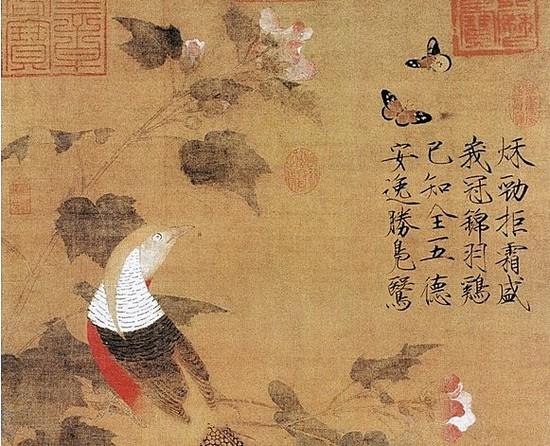 秋勁拒霜盛
峩冠錦羽鷄
已知全五德
安逸勝鳬鷖